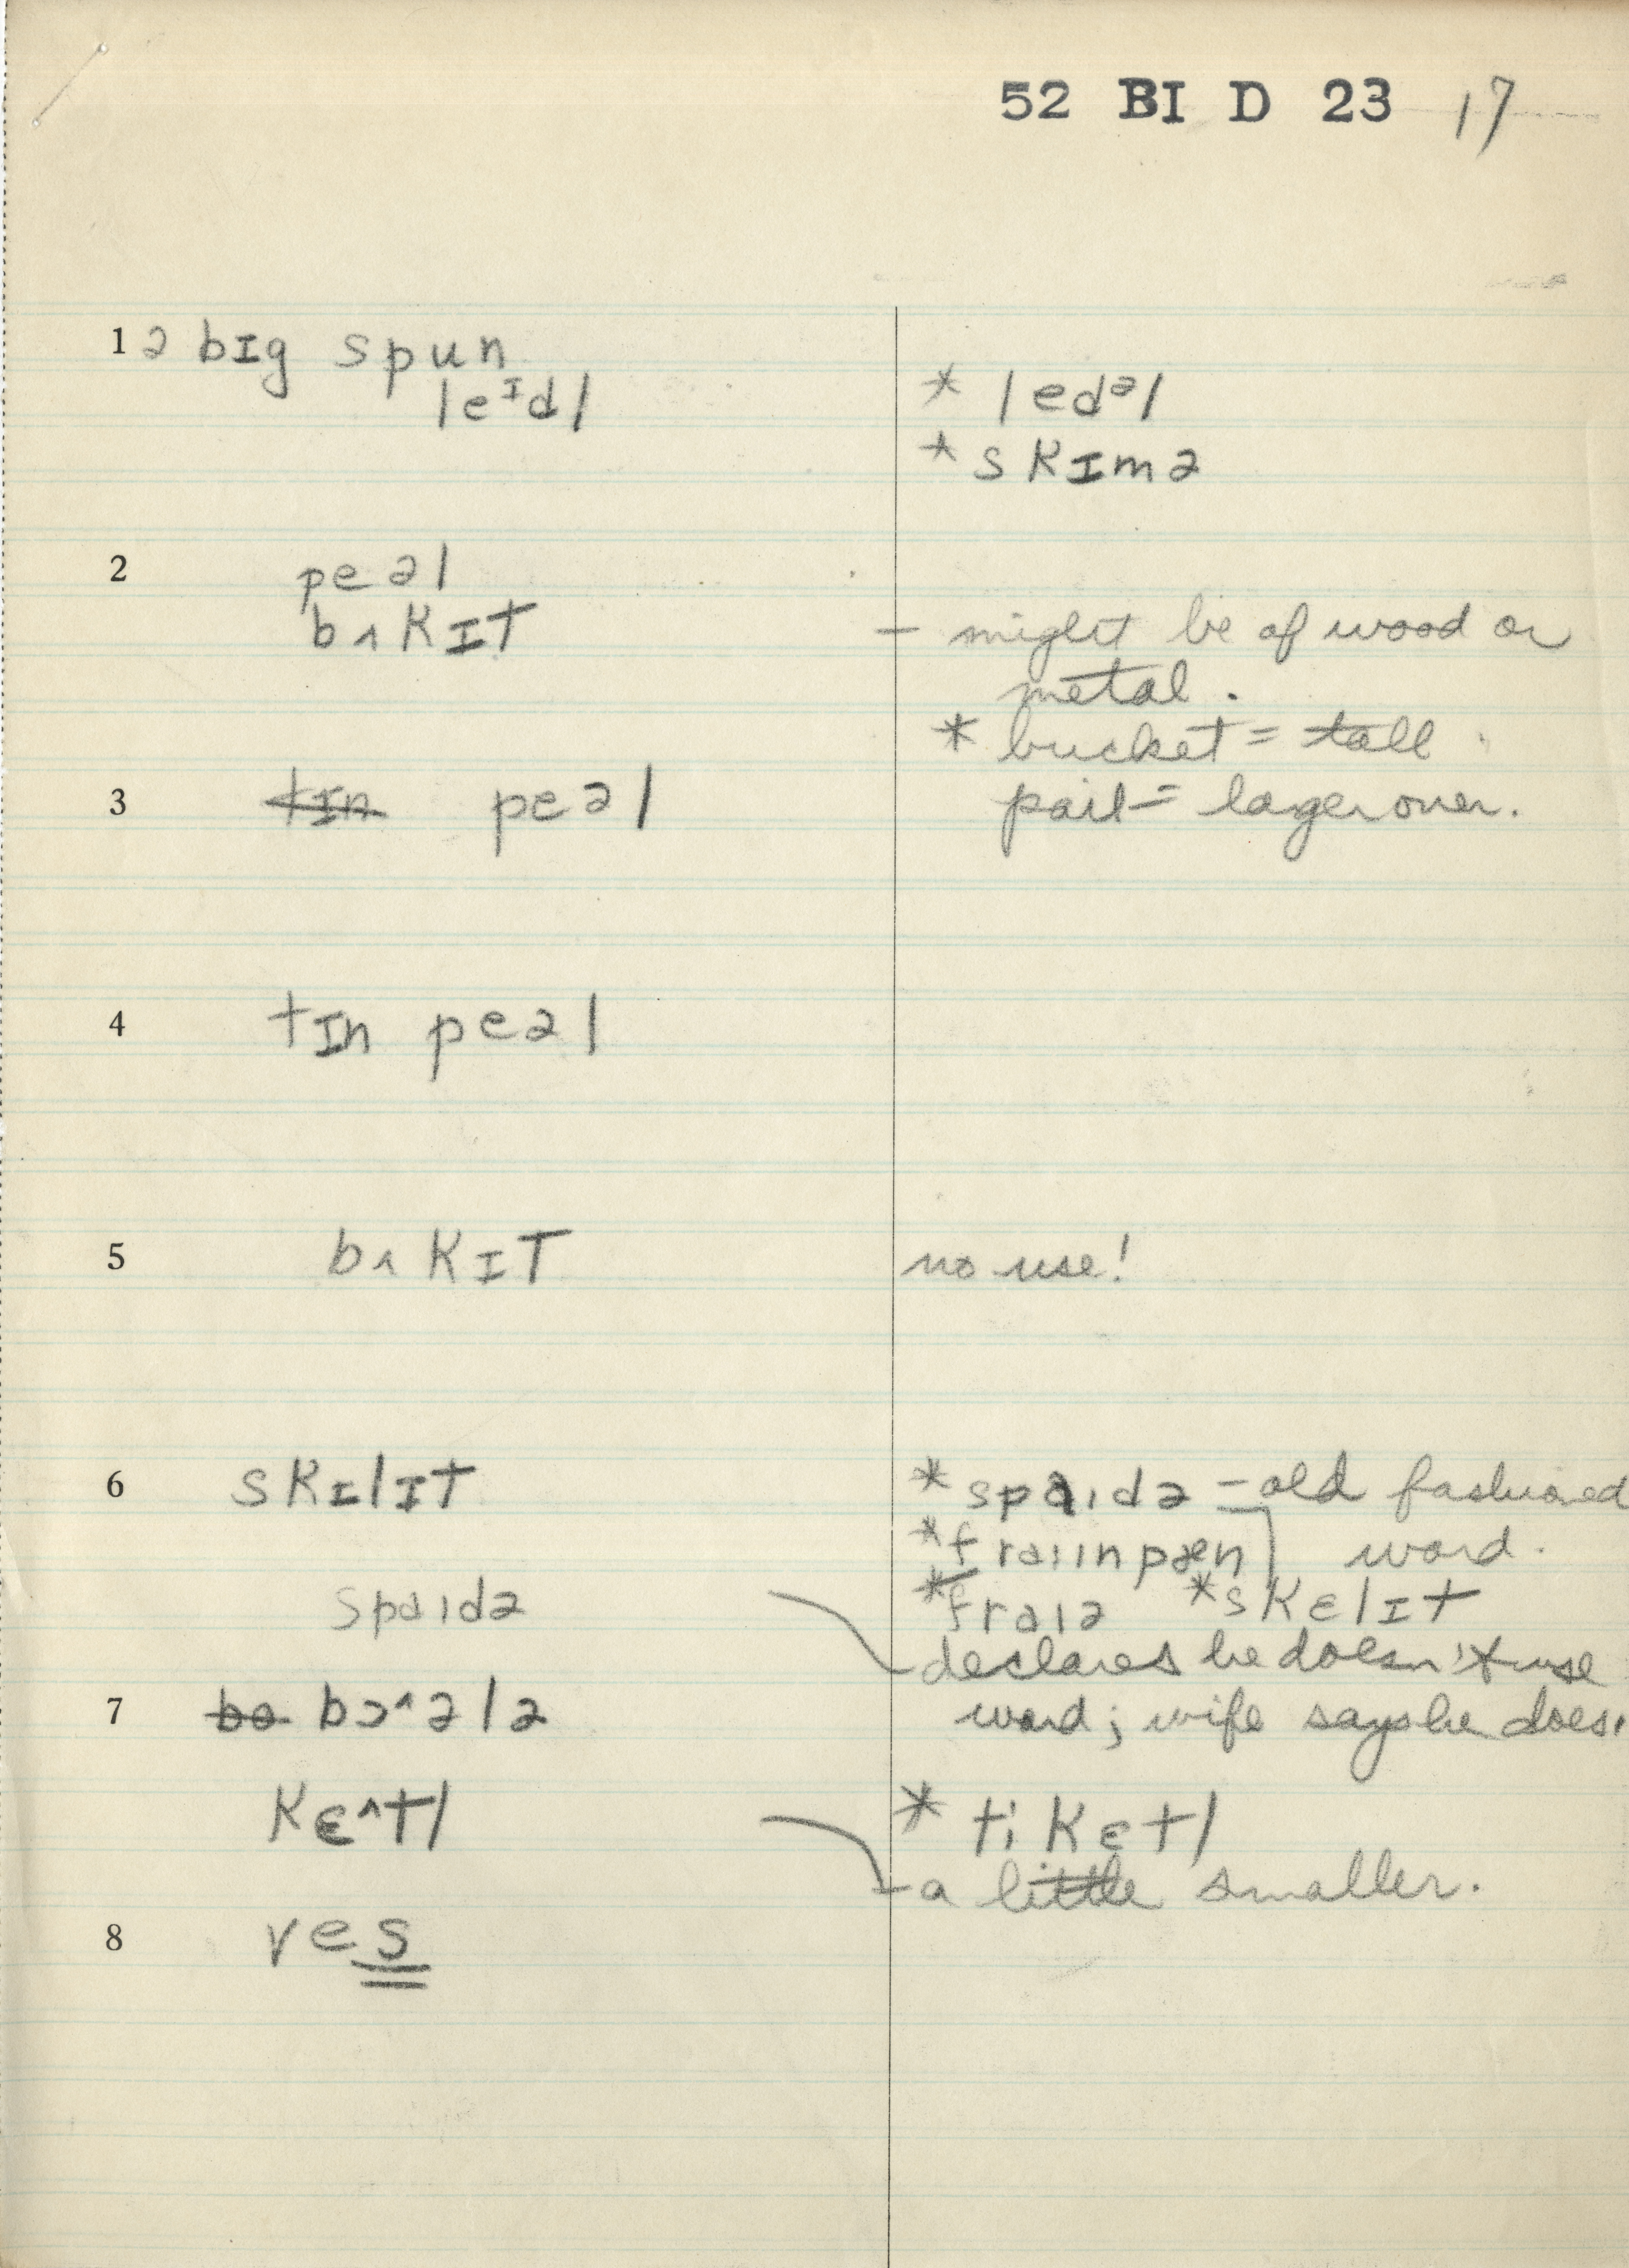 52 BI D 23 17
1 ə bɪg spun
leᶦdl
* ledᵊl
* skɪmə
2 peəl
bʌkɪt
– might be of wood or
metal.
* bucket = tall
3 t̶ɪ̶n̶ peəl
pail = larger over.
4 tɪn peəl
5 bʌkɪt
no use!
6 skɪlɪt
* spaɪdə – old fashioned
* fraiinpæn word.
spaɪdə
* fraɪə * skɛlɪt
– declares he doesn't use
7 b̶o̶ bɔ^ələ
word; wife says he does.
kɛ^tl
* ti kɛtl
– a little smaller.
8 ves